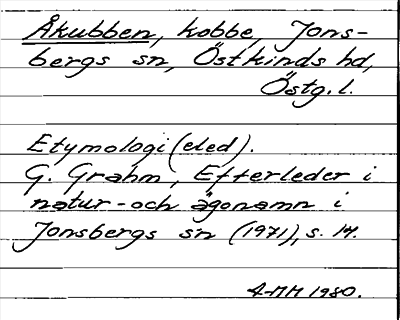 Åkubben, kobbe, Jons-
bergs sn, Östkinds hd,
Östg. l.
Etymologi (eled).
G. Grahm, Efterleder i
natur- och ägonamn i
Jonsbergs sn (1971), s. 14.
A-MM 1980.